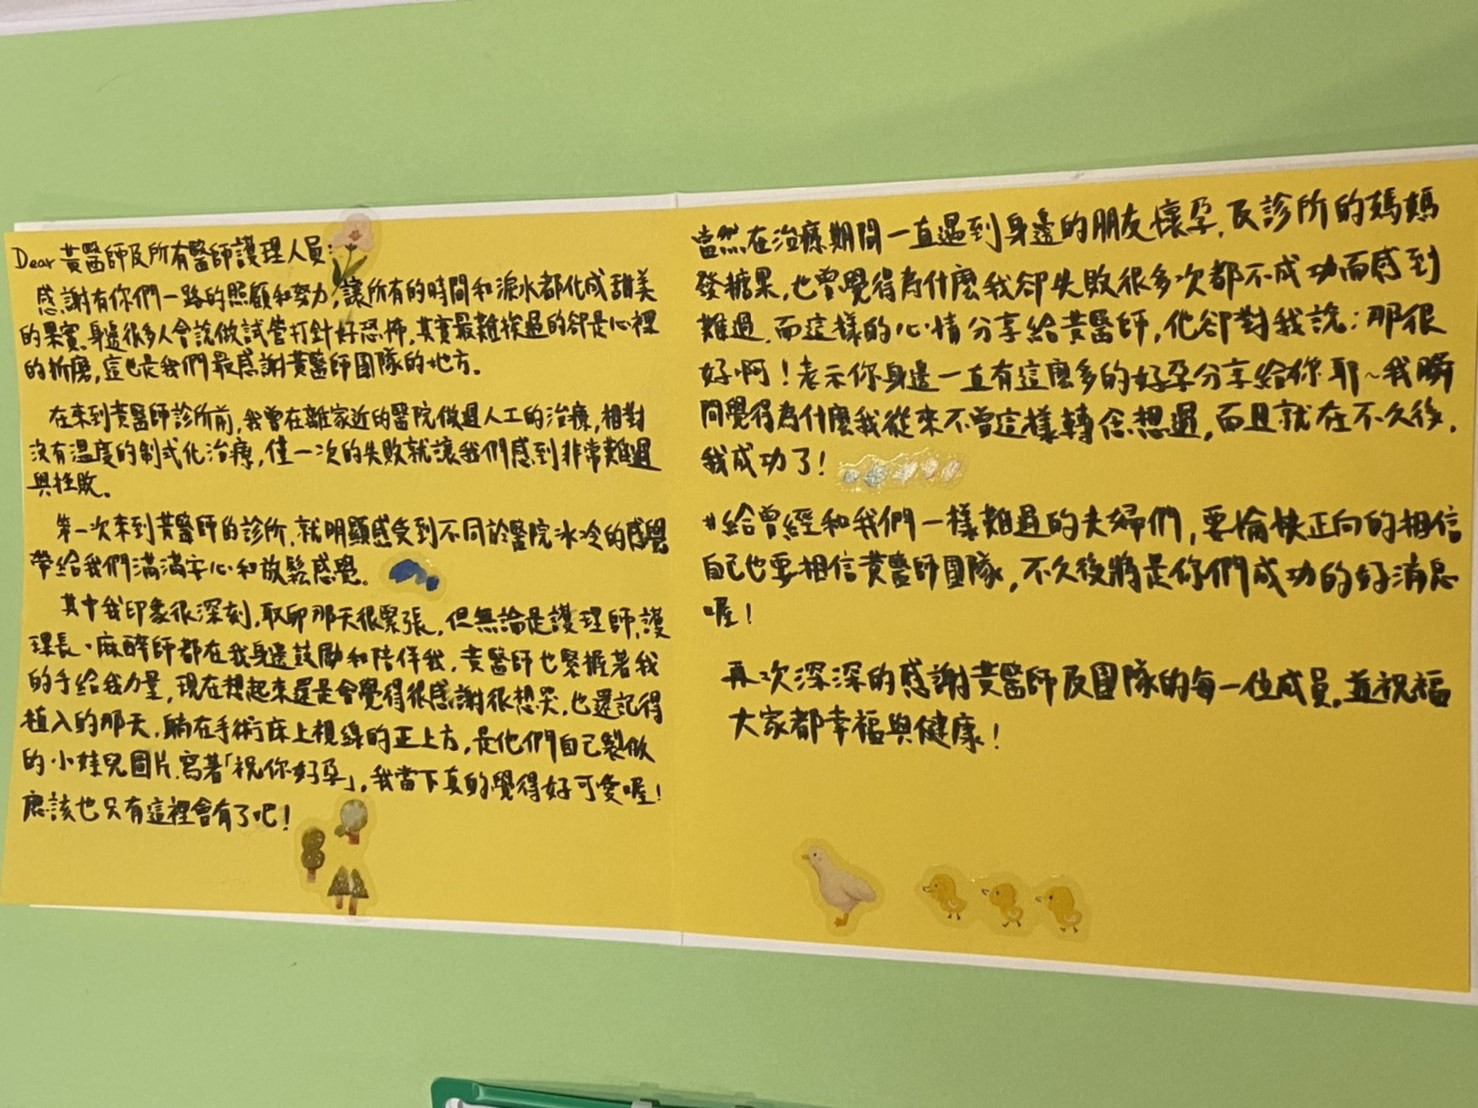 Dear 黃醫師及所有醫師護理人員：
感謝有你們一路的照顧和努力，讓所有的時間和淚水都化成甜美
的果實。身邊很多人會說做試管打針好恐怖，其實最難挨過的卻是心裡
的折磨，這也是我們最感謝黃醫師團隊的地方。
在來到黃醫師診所前，我曾在離家近的醫院做過人工的治療，相對
沒有溫度的制式化治療，僅一次的失敗就讓我們感到非常難過
與挫敗。
第一次來到黃醫師的診所，就明顯感受到不同於醫院冰冷的感覺
帶給我們滿滿安心和放鬆感覺。
其中我印象很深刻，取卵那天很緊張，但無論是護理師、護
理長、麻醉師都在我身邊鼓勵和陪伴我，黃醫師也緊握著我
的手給我力量，現在想起來還是會覺得很感謝很想哭，也還記得
植入的那天，躺在手術床上視線的正上方，是他們自己製做
的小娃兒圖片，寫著「祝你好孕」，我當下真的覺得好可愛喔！
應該也只有這裡會有了吧！
當然在治療期間一直遇到身邊的朋友懷孕，及診所的媽媽
發糖果，也曾覺得為什麼我卻失敗很多次都不成功而感到
難過，而這樣的心情分享給黃醫師，他卻對我說：那很
好啊！表示你身邊一直有這麼多的好孕分享給你耶~我瞬
間覺得為什麼我從來不曾這樣轉念想過，而且就在不久後，
我成功了！
#給曾經和我們一樣難過的夫婦們，要愉快正向的相信
自己也要相信黃醫師團隊，不久後將是你們成功的好消息
喔！
再次深深的感謝黃醫師及團隊的每一位成員，並祝福
大家都幸福與健康！